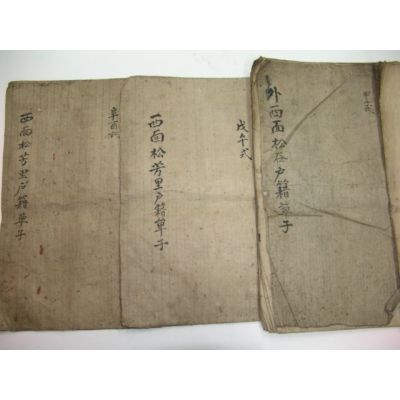 甲子式
外西面松谷戶籍草子
戊午式
西面松芳里戶籍草子
辛酉式
西面松芳里戶籍草子